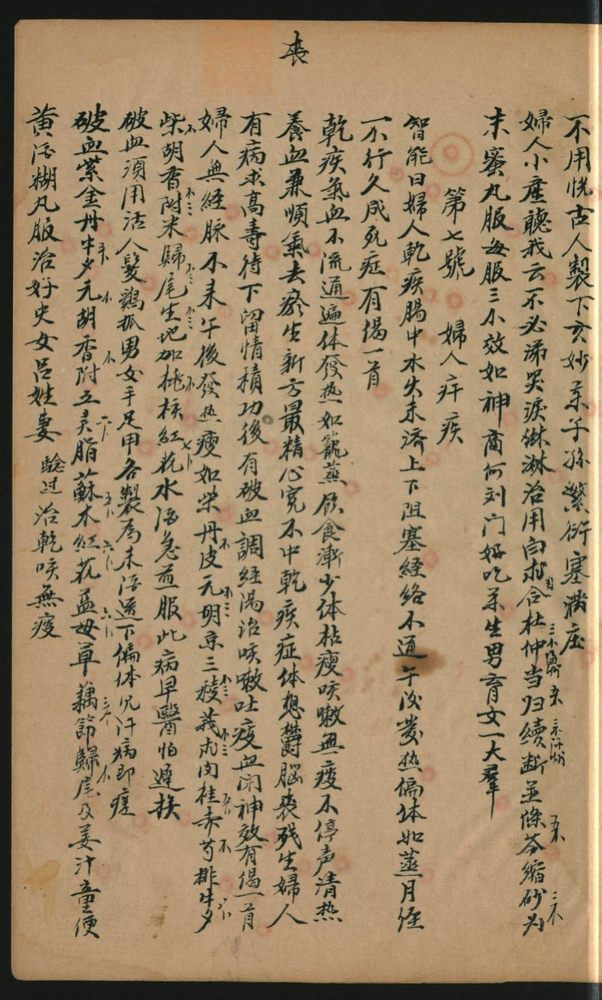 丧
不用忧古人製下真妙子孫繁衍塞满庄
婦人小產聽我云不必啼哭淚淋淋治用白朮合杜仲当归續断並條芩縮砂为
末蜜丸服每服三小效如神商何刘门好吃茶生男育女一大羣
第七號 婦人奸疾
智能曰婦人乾疾腸中水火未济上下阻塞經络不通午後發热偏体如蒸月經
不行久成死症有偈一首
乾疾氣血不流通遍体發热如籠蒸飲食漸少体枯瘦咳嗽無痰不停声清热
養血兼順氣去瘀生新方最精心宽不中乾疾症体想欝腦丧残生婦人
有病求高壽待下留情積功後有破血調經湯治咳嗽吐痰血闭神效有偈一首
婦人無經脉不来午後發热瘦如柴丹皮元胡京三稜莪朮肉桂赤芍排牛夕
柴胡香附米歸尾生地加桃核紅花水酒急煎服此病早醫怕遲挨
破血須用活人髮鷄抓男女手足甲各製为末酒送下偏体見汗病即瘥
破血紫金丹牛夕元胡香附五灵脂蘇木紅花益母草藕節歸尾及姜汁童便
黄酒糊丸服治好史女吕姓妻 驗过治乾咳無痰